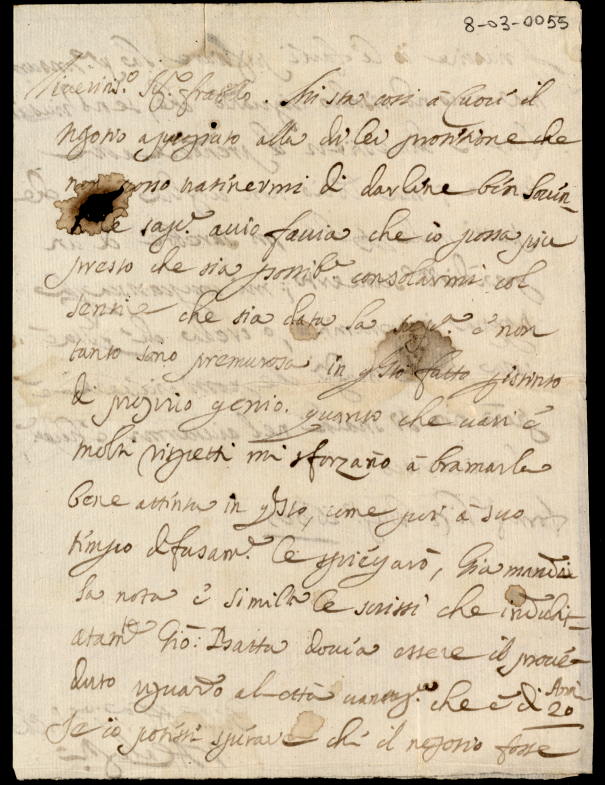 8-03-0055
Sig.r fratello. Mi sta così à Cuore il
negotio apogiato alla di lei protetione che
non posso ratinermi di darline ben sovin-
e sap.e avio favia che io possa piu
presto che sia possib.e consolarmi col
sentir che sia data la è non
tanto sono premurosa in q.sto fatto p istinto
di proprio genio. quanto che varì è
molti rispetti mi sforzano à bramarla
bene attinta in q.sto, come poi a suo
tempo difusam.e le spiegarò, Gia mandai
la nota è simil.e le scrissi che indubi-
tatam.e Gio: Batta dovia essere il prove-
duto riguardo al età che è di Anni
20
Se io potessi sperare chi il negotio fosse